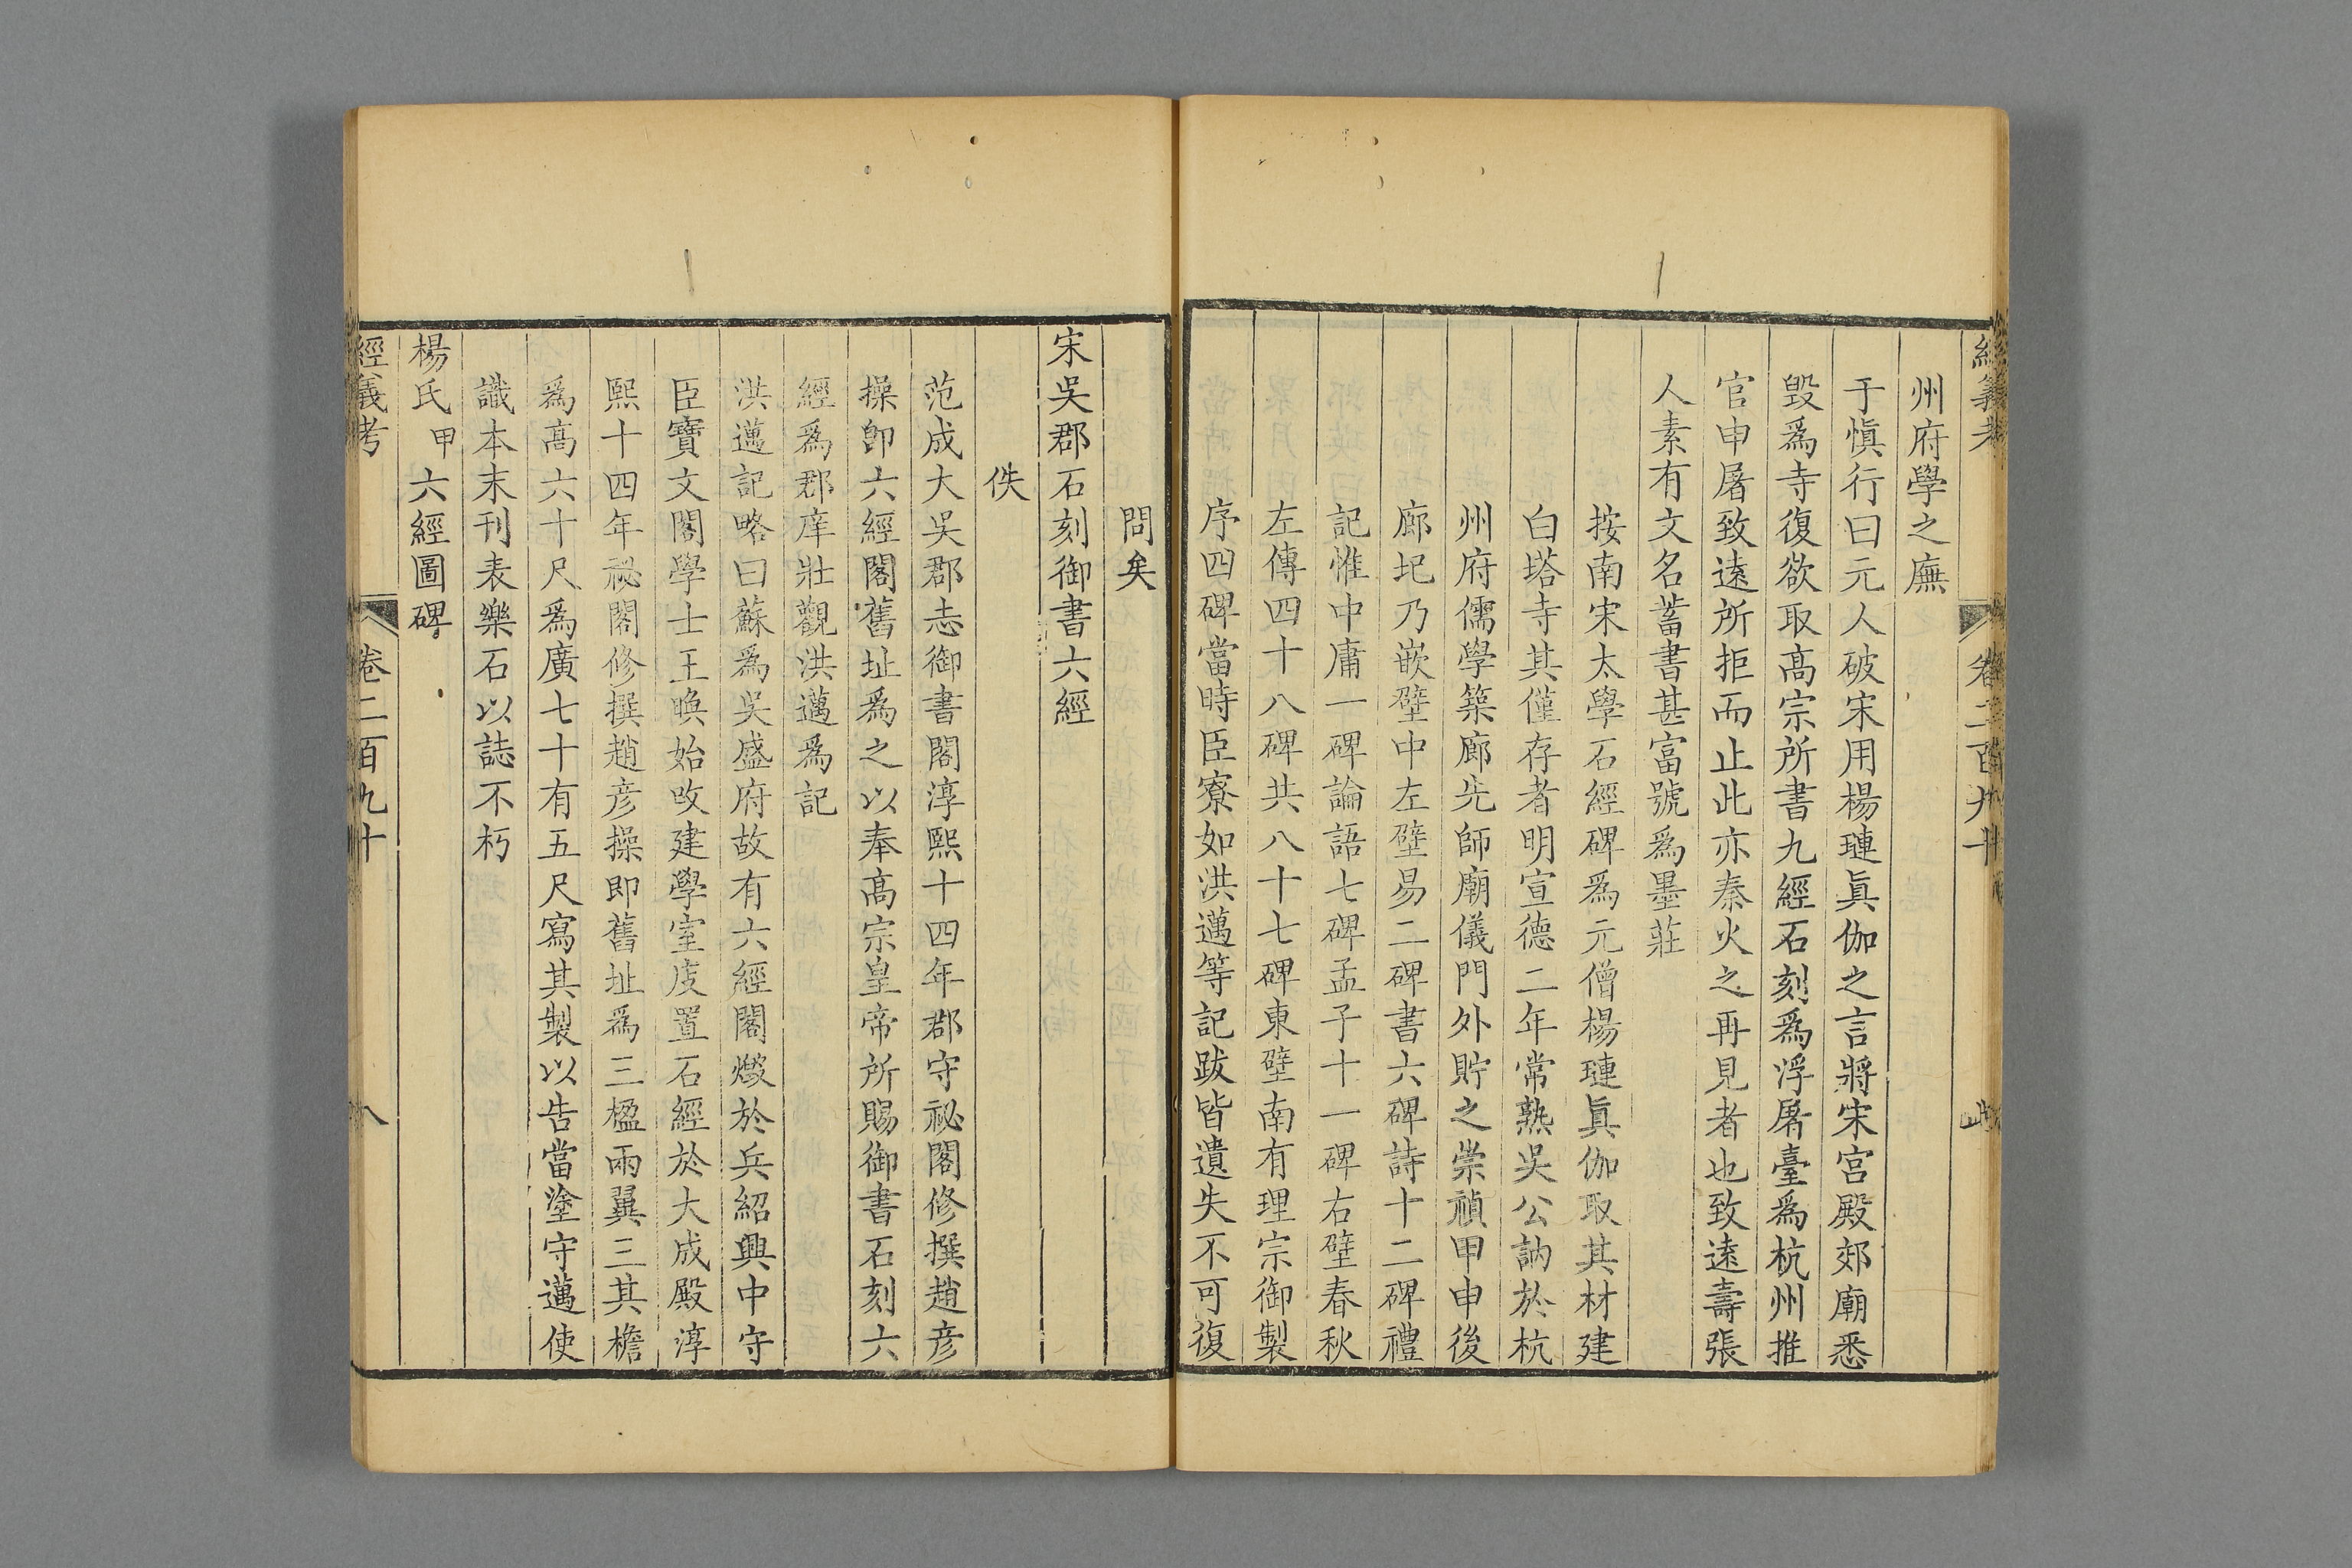 經義考 卷二百九十
州府學之廡
于愼行曰元人破宋用楊璉眞伽之言將宋宮殿郊廟悉
毁爲寺復欲取髙宗所書九經石刻爲浮屠臺爲杭州推
官申屠致遠所拒而止此亦秦火之再見者也致遠壽張
人素有文名蓄書甚富號爲墨莊
按南宋太學石經碑爲元僧楊璉眞伽取其材建
白塔寺其僅存者明宣德二年常熟吳公訥於杭
州府儒學築廊先師廟儀門外貯之崇禎甲申後
廊圮乃嵌壁中左壁易二碑書六碑詩十二碑禮
記惟中庸一碑論語七碑孟子十一碑右壁春秋
左傳四十八碑共八十七碑東壁南有理宗御製
序四碑當時臣寮如洪邁等記跋皆遺失不可復
問矣
宋吳郡石刻御書六經
佚
范成大吳郡志御書閣淳熙十四年郡守祕閣修撰趙彦
操卽六經閣舊址爲之以奉髙宗皇帝所賜御書石刻六
經爲郡庠壯觀洪邁爲記
洪邁記略曰蘇爲吳盛府故有六經閣燬於兵紹興中守
臣寶文閣學士王㬇始攺建學室庋置石經於大成殿淳
熙十四年祕閣修撰趙彦操卽舊址爲三楹兩翼三其檐
爲髙六十尺爲廣七十有五尺寫其製以告當塗守邁使
識本末刊表樂石以誌不朽
楊氏甲六經圖碑
經義考 卷二百九十 八